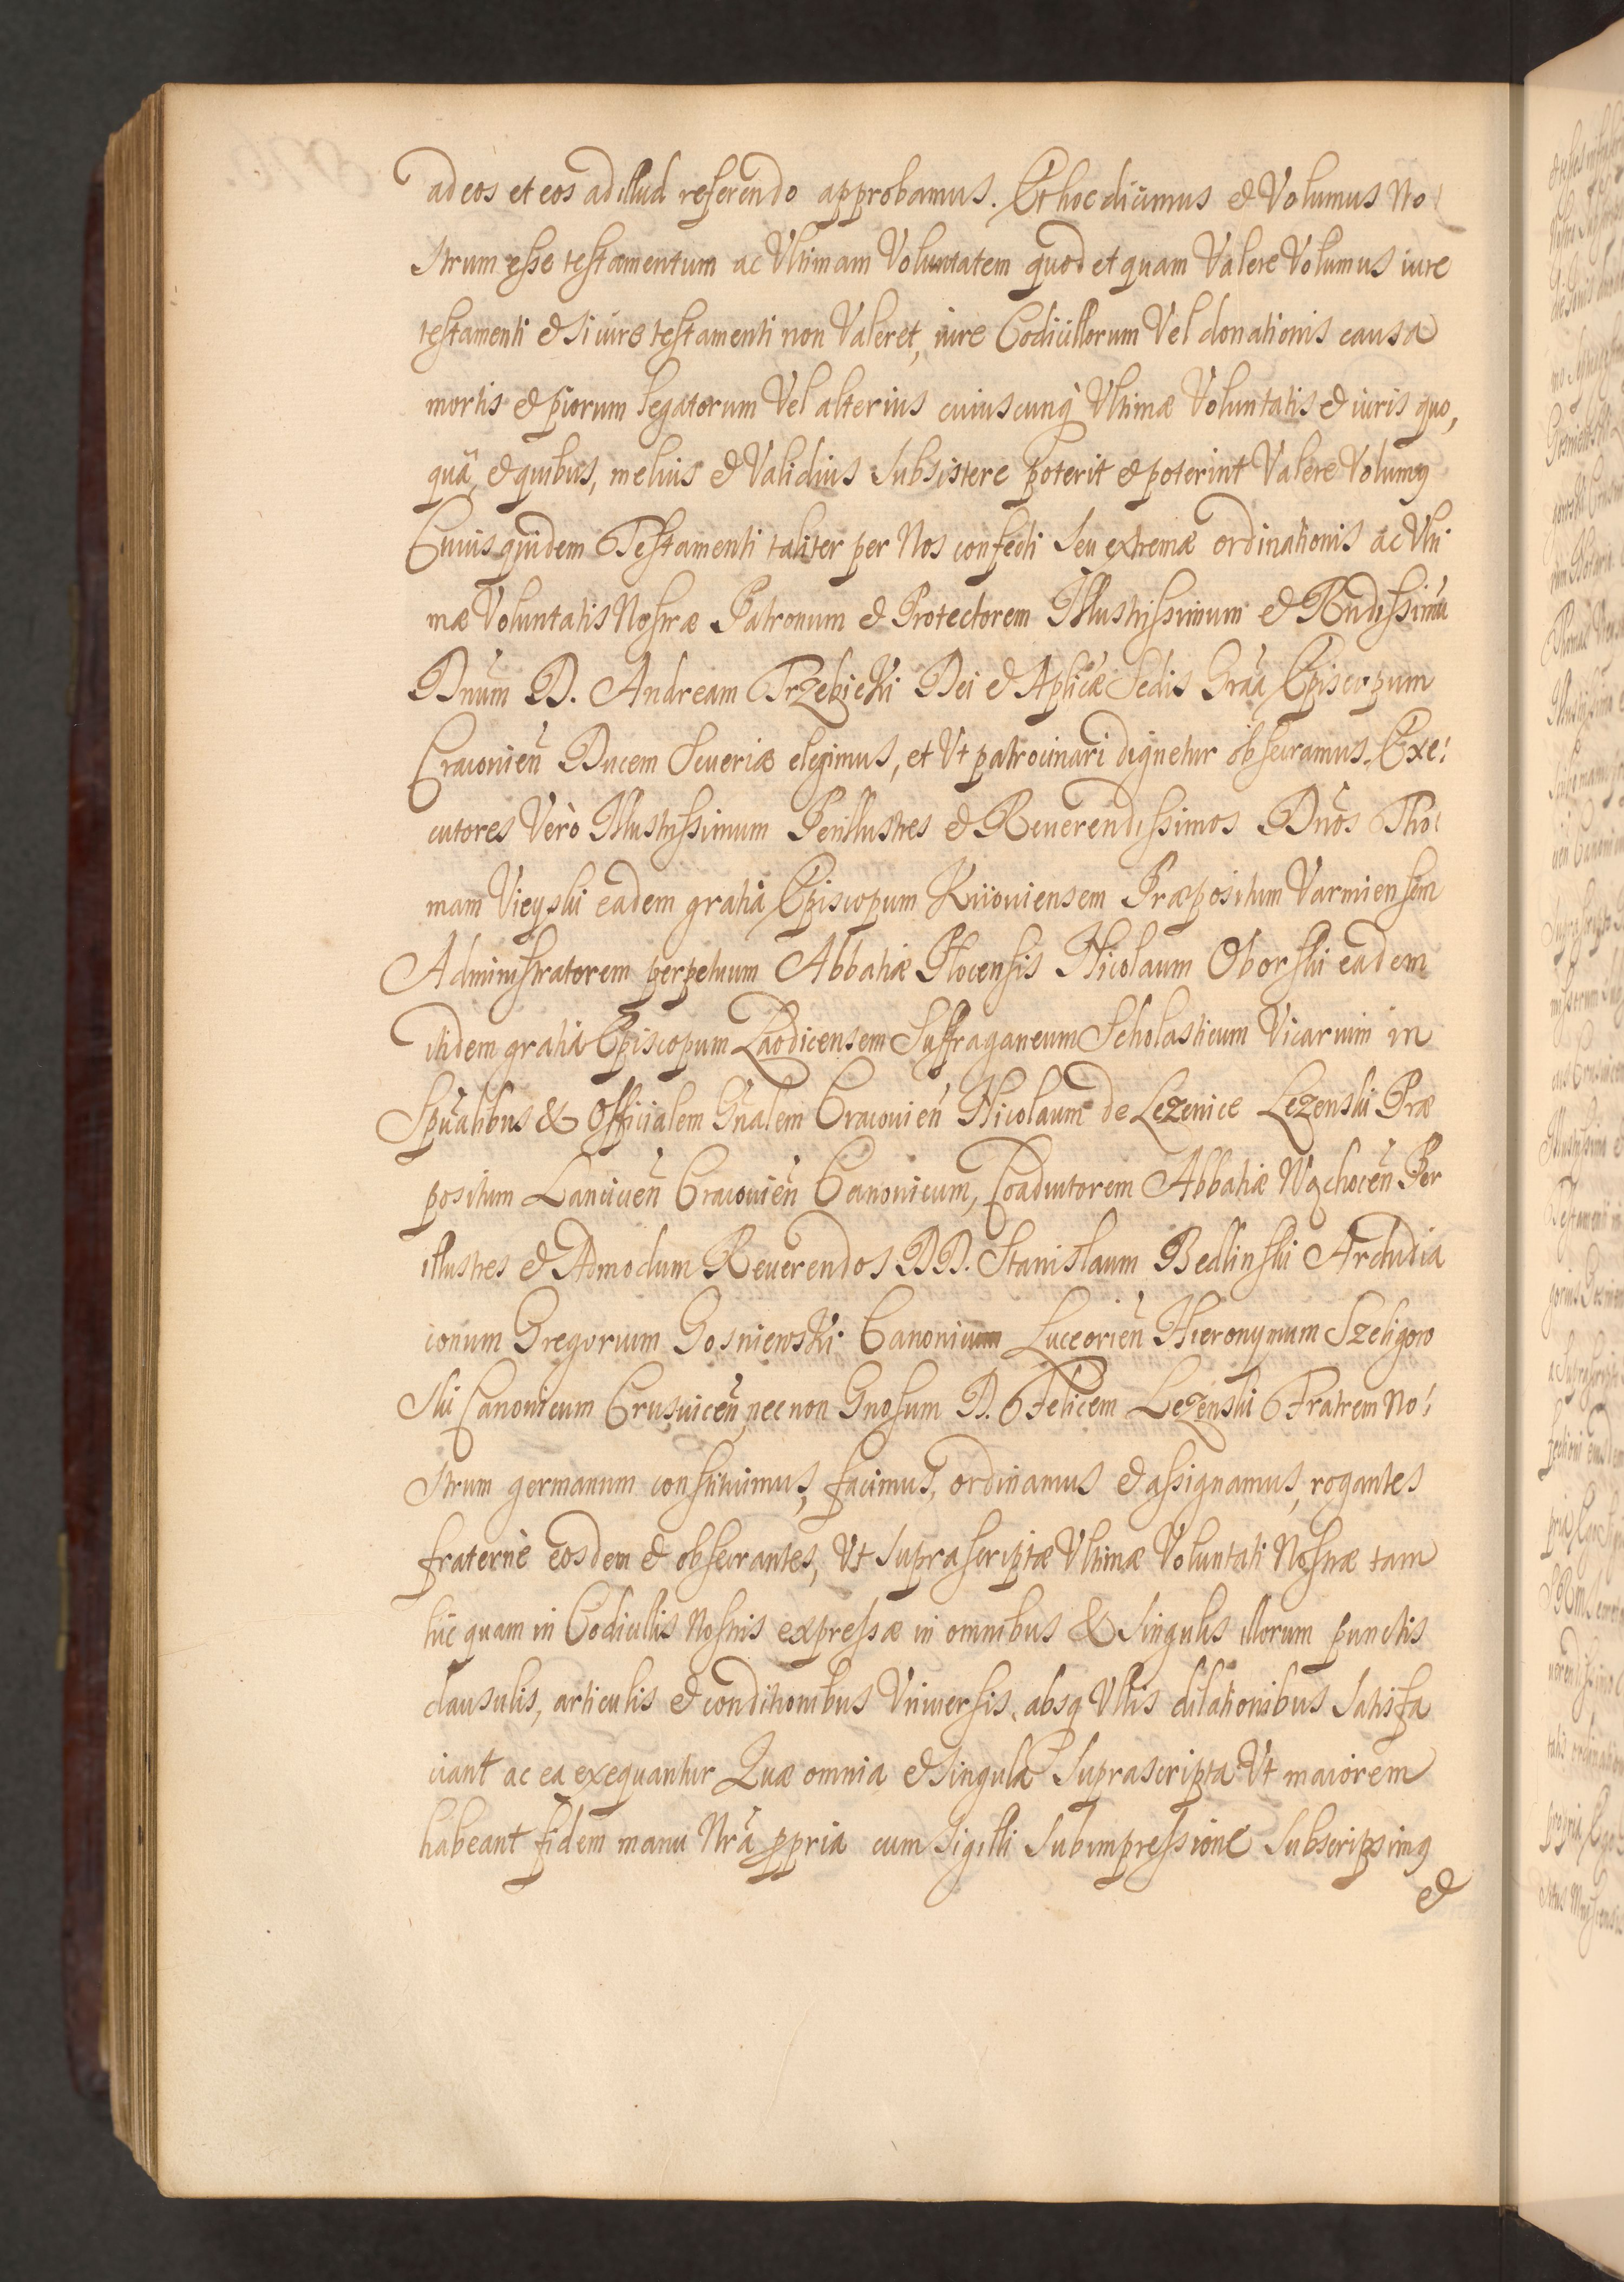 ad eos et eos ad illud referendo approbamus. Et hoc dicimus et Volumus No
strum esse testamentum ac Vltimam Voluntatem quod et quam Valere Volumus iure
testamenti et si iure testamenti non Valeret, iure Codicillorum Vel donationis causa
mortis et piorum legatorum Vel alterius cuiuscunq Vltimæ Voluntatis et iuris quo,
quâ, et quibus, melius et Validius subsistere poterit et poterint Valere Volumq
Cuius quidem Testamenti taliter per Nos confecti seu extremæ ordinationis ac Vlti
mæ Voluntatis Nostræ Patronum et Protectorem Illustrissimum et Rndissimū
Dnūm D. Andream Trzebicki Dei et Aplicæ Sedis Grãa Episcopum
Cracovieñ Ducem Seueriæ elegimus, et Vt patrocinari dignetur obsecramus. Exe:
cutores Verò Illustrissimum Perillustres et Reuerendissimos Dños Tho:
mam Vieyski eadem gratiâ Episcopum Kiiouiensem Præpositum Varmiensem
Administratorem perpetuum Abbatiæ Plocensis Nicolaum Oborski eadem
itidem gratiâ Episcopum Laodicensem Suffraganeum Scholasticum Vicarium in
Spũalibus & Officialem Gñalem Cracouień Nicolaum de Lezenice Lezenski Præ
positum Lancicień Cracouień Canonicum, Coadiutorem Abbatiæ Wąchoceń Per
illustres et Admodum Reuerendos DD. Stanislaum Bedlinski Archidia
conum Gregorium Gosniewski Canonicum Luceorień Hieronymum Szeligow
ski Canonicum Crusuiceñ, nec non Gnosum D. Felicem Lezenski Fratrem No:
strum germanum constituimus, facimus, ordinamus et assignamus, rogantes
fraternè eosdem et obsecrantes, Vt suprascriptæ Vltimæ Voluntati Nostræ tam
hîc quam in Codicillis Nostris expressæ in omnibus & singulis illorum punctis
clausulis, articulis et conditionibus Vniuersis, absq Vllis dilationibus satisfa
ciant ac ea exequantur Quæ omnia et singula suprascripta Vt maiorem
habeant fidem manu Nrã ppria cum sigilli subimpressione subscripsimq
et